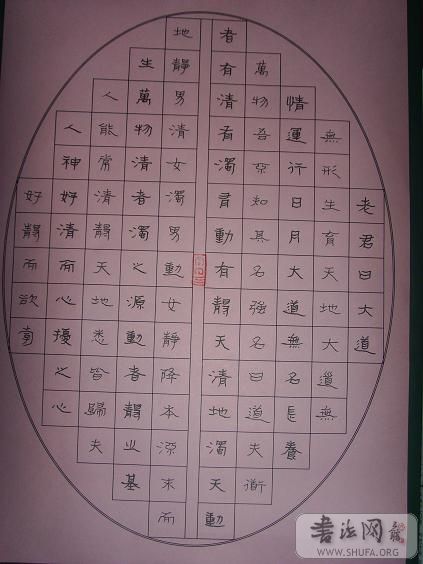 老君曰大道
無形生育天地大道無
情運行日月大道無名長養
萬物吾不知其名強名曰道夫衜
者有清有濁有動有靜天清地濁天動
地靜男清女濁男動女靜降本流末而
生萬物清者濁之源動者靜之基
人能常清靜天地悉皆歸夫
人神好清而心擾之心
好靜而欲牽
書法网
WWW.SHUFA.ORG